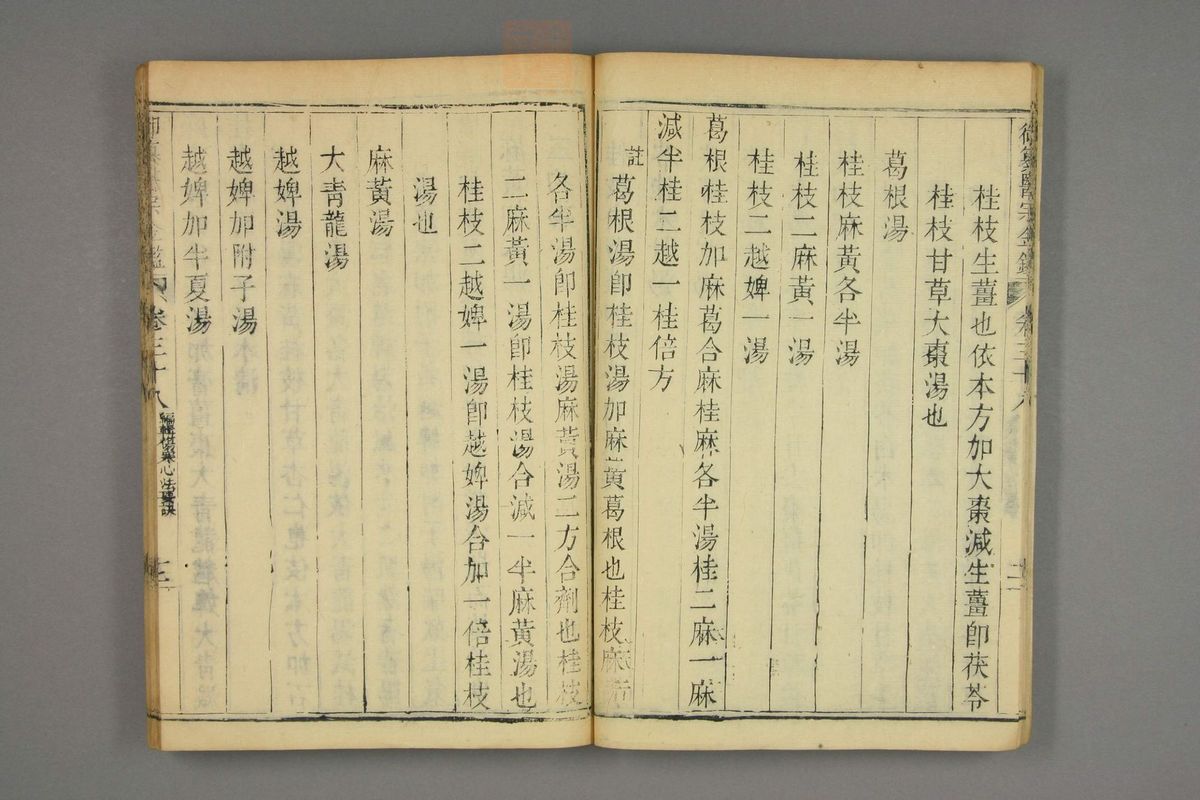 桂枝生薑也依本方加大棗減生薑卽茯苓
桂枝甘草大棗湯也
葛根湯
桂枝麻黃各半湯
桂枝二麻黃一湯
桂枝二越婢一湯
葛根桂枝加麻葛合麻桂麻各半湯桂二麻一麻
減半桂二越一桂倍方
註葛根湯卽桂枝湯加麻黃葛根也桂枝麻黃
各半湯卽桂枝湯麻黃湯二方合劑也桂枝
二麻黃一湯卽桂枝湯合減一半麻黃湯也
桂枝二越婢一湯卽越婢湯合加一倍桂枝
湯也
麻黃湯
大青龍湯
越婢湯
越婢加附子湯
越婢加半夏湯
卷三十八
編輯傷寒心法要訣